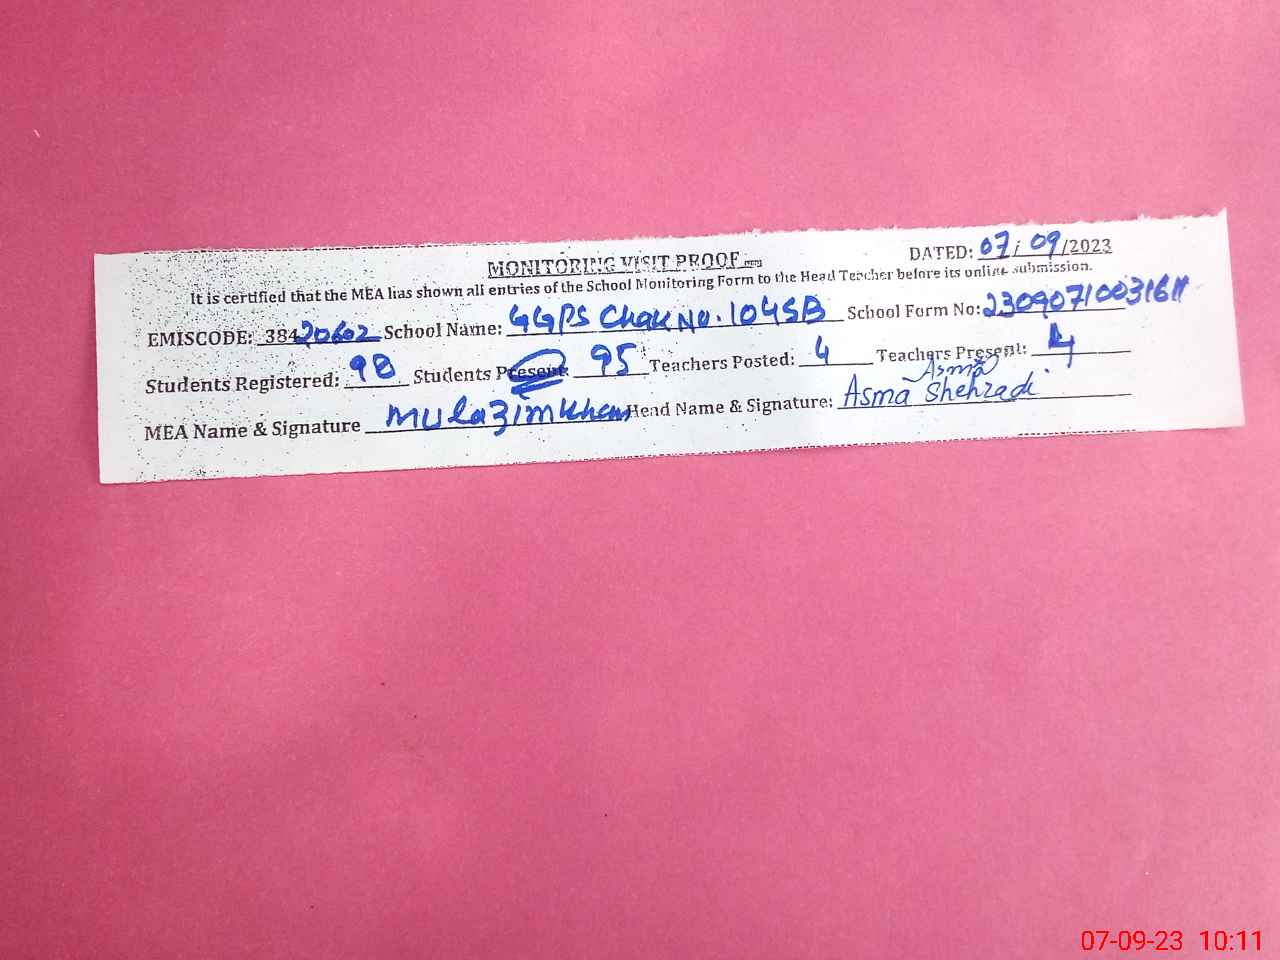 MONITORING VISIT PROOF
DATED: 07/09/2023
It is certified that the MEA has shown all entries of the School Monitoring Form to the Head Teacher before its online submission.
EMISCODE: 38420602 School Name: GGPS Chak No. 104SB School Form No:
Students Registered: 98 Students Present: 95 Teachers Posted: 4 Teachers Present: 4
Asma
MEA Name & Signature Mulazim Khan Head Name & Signature: Asma Shehzadi
07-09-23 10:11